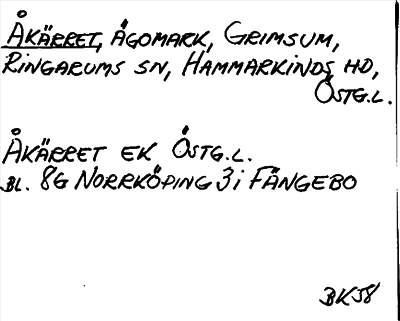 Åkärret, Ägomark, Grimsum,
Ringarums sn, Hammarkinds hd,
Östg.l.
Åkärret ek Östg.l.
Bl. 8G Norrköping 3i Fängebo
BK58